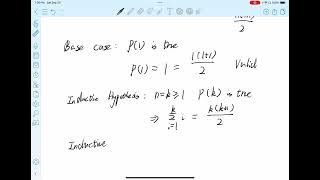 2
Base case: P(1) is true
P(1) = 1 = 1(1+1)/2 Valid
Inductive Hypothesis: n=k≥1 P(k) is true
⇒ ∑_{i=1}^{k} i = k(k+1)/2
Inductive